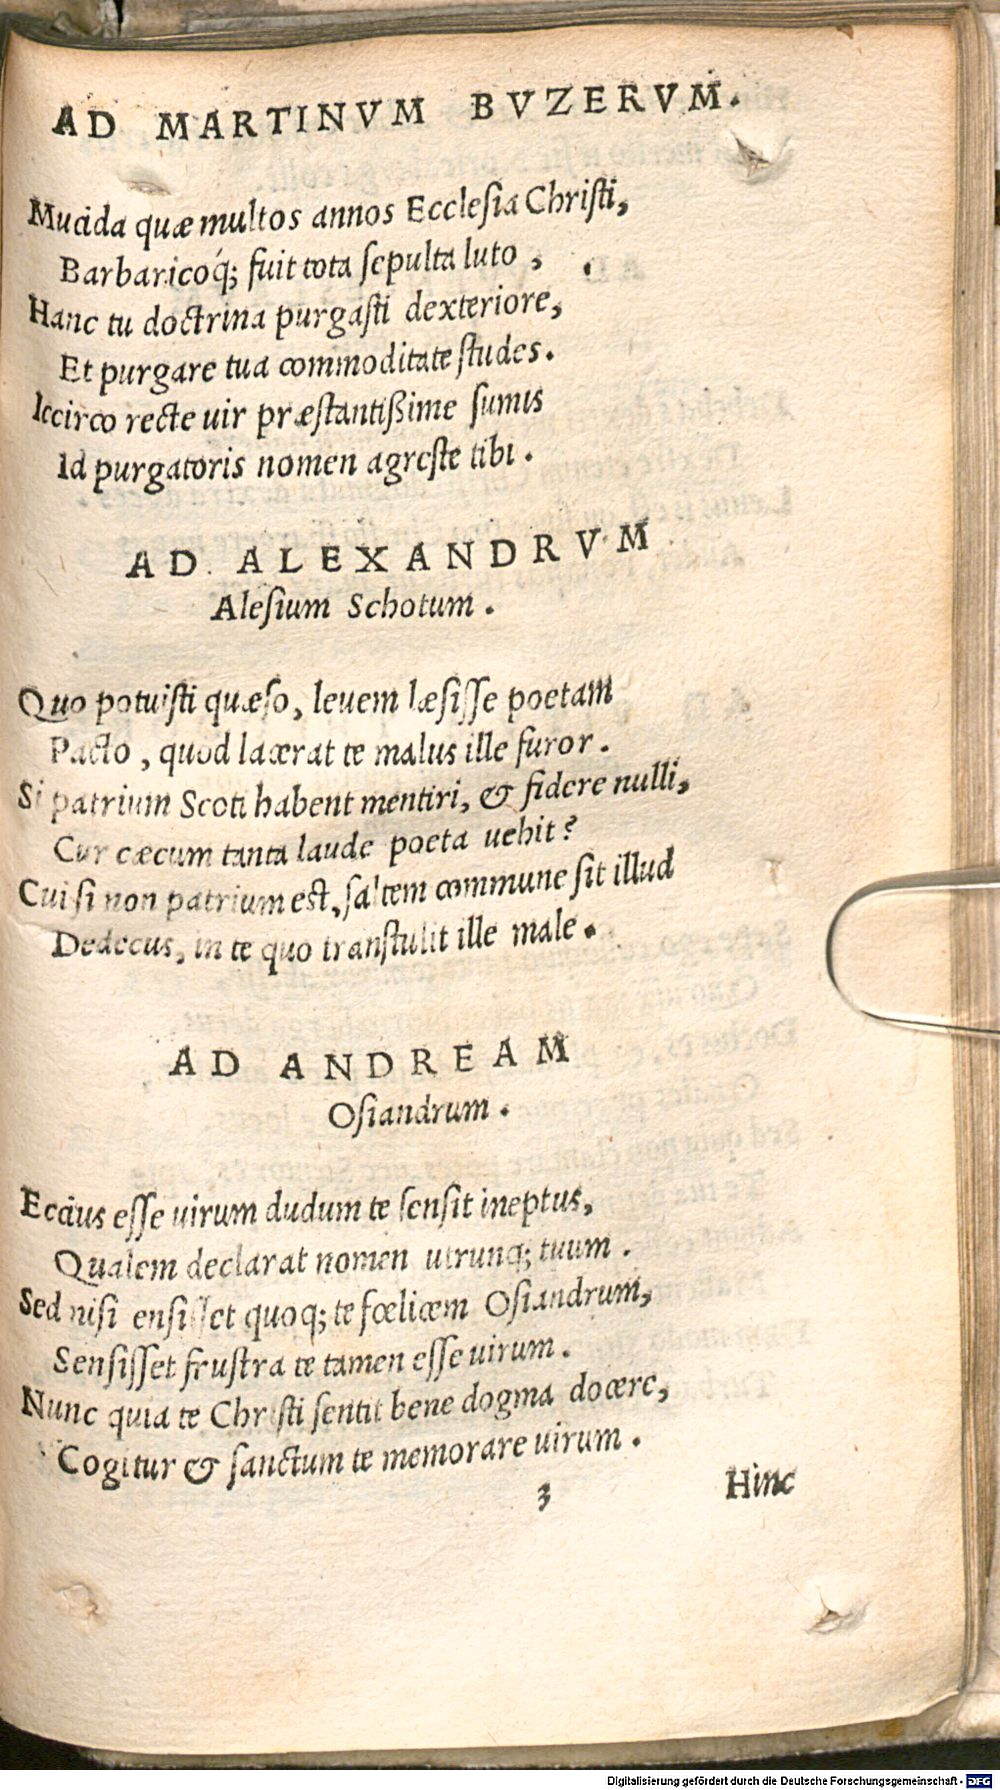 AD MARTINVM BVZERVM.
Mucida quæ multos annos Ecclesia Christi,
Barbaricoq́; fuit tota sepulta luto,
Hanc tu doctrina purgasti dexteriore,
Et purgare tua commoditate studes.
Iccirco recte uir præstantißime sumis
Id purgatoris nomen agreste tibi.
AD ALEXANDRVM
Alesium Schotum.
Quo potuisti quæso, leuem læsisse poetam
Pacto, quod lacerat te malus ille furor.
Si patrium Scoti habent mentiri, & fidere nulli,
Cur cæcum tanta laude poeta uehit?
Cui si non patrium est, saltem commune sit illud
Dedecus, in te quo transtulit ille male.
AD ANDREAM
Osiandrum.
Eccius esse uirum dudum te sensit ineptus,
Qualem declarat nomen utrunq; tuum.
Sed nisi sensisset quoq; te fœlicem Osiandrum,
Sensisset frustra te tamen esse uirum.
Nunc quia te Christi sentit bene dogma docere,
Cogitur & sanctum te memorare uirum.
3 Hinc
Digitalisierung gefördert durch die Deutsche Forschungsgemeinschaft - DFG